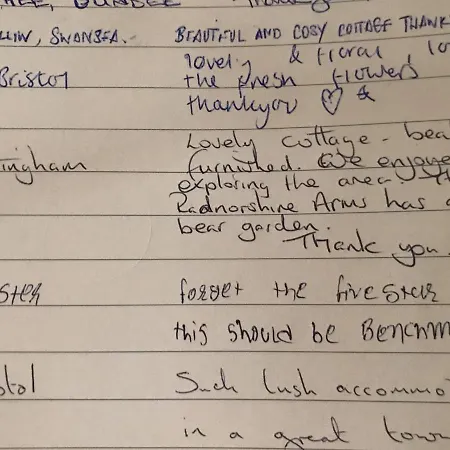 DUNDEE
SWANSEA. BEAUTIFUL AND COSY COTTAGE THANK
lovely & floral, lo
Bristol the fresh flowers
thankyou ♡ &
Lovely cottage - bea
ingham furnished. We enjoye
exploring the area. Th
Radnorshire Arms has a
bear garden.
Thank you.
ster forget the five star
this should be BENCHM
stol Such lush accommo
in a great town